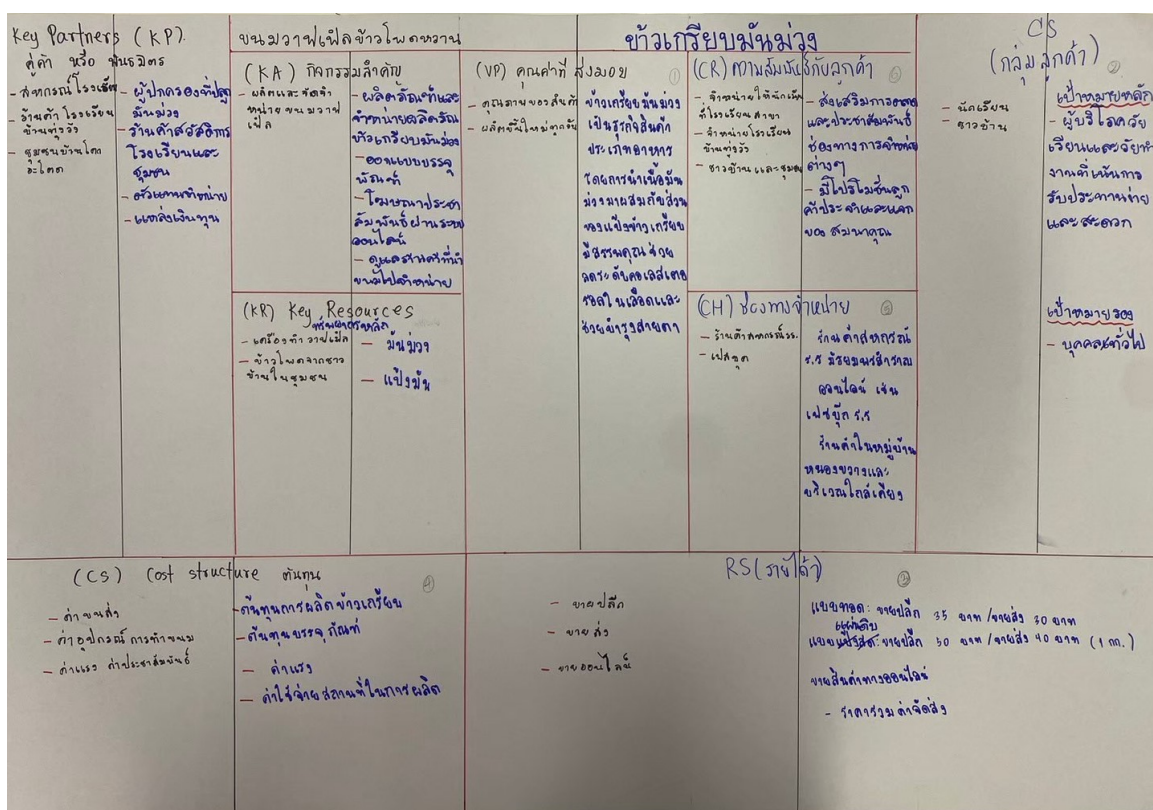 Key Partners (KP).
คู่ค้า หรือ พันธมิตร
- สหกรณ์โรงเรียน
- ร้านค้า โรงเรียน
บ้านทุ่งวัว
- ชุมชนบ้านโคก
- ผู้ปกครองที่ปลูก
มันม่วง
- ร้านค้าสวัสดิการ
โรงเรียนและ
ชุมชน
- ตัวแทนจำหน่าย
- แหล่งเงินทุน
ขนมวาฟเฟิลข้าวโพดหวาน
ข้าวเกรียบมันม่วง
(KA) กิจกรรมสำคัญ
- ผลิตและจัดจำ
หน่ายขนมวาฟ
เฟิล
- ผลิตภัณฑ์และ
จำหน่ายผลิตภัณ
ข้าวเกรียบมันม่วง
- ออกแบบบรรจุ
พัณฑ์
- โฆษณาประชา
สัมพันธ์ผ่านระบบ
ออนไลน์
- ดูแลร้านค้าที่นำ
ขนมไปจำหน่าย
(KR) Key Resources
ทรัพยากรหลัก
- เครื่องทำ วาฟเฟิล
- ข้าวโพดจากชาว
บ้านในชุมชน
- มันม่วง
- แป้งมัน
(VP) คุณค่าที่ ส่งมอบ ①
- คุณภาพของสินค้า
- ผลิตขึ้นใหม่ทุกวัน
ข้าวเกรียบมันม่วง
เป็นธุรกิจสินค้า
ประเภทอาหาร
โดยการนำเนื้อมัน
ม่วงมาผสมกับส่วน
ของแป้งข้าวเกรียบ
มีสรรพคุณช่วย
ลดระดับคอเลสเตอ
รอลในเลือดและ
ช่วยบำรุงสายตา
(CR) ความสัมพันธ์กับลูกค้า
- จำหน่ายให้นักเรียน
ที่โรงเรียนสาขา
- จำหน่ายโรงเรียน
บ้านทุ่งวัว
- ชาวบ้าน และชุมชน
- ส่งเสริมการตลาด
และประชาสัมพันธ์
ช่องทางการจำหน่าย
ต่างๆ
- มีโปรโมชั่นลูก
ค้าประจำและแจก
ของ สมนาคุณ
(CH) ช่องทางจำหน่าย
- ร้านค้าสหกรณ์รร.
- เฟสบุค
ร้านค้าสหกรณ์
ร.ร มัธยม
ออนไลน์ เช่น
เฟซบุ๊ก ร.ร
ร้านค้าในหมู่บ้าน
หนองขวางและ
บริเวณใกล้เคียง
CS
(กลุ่มลูกค้า) ②
- นักเรียน
- ชาวบ้าน
เป้าหมายหลัก
- ผู้บริโภควัย
เรียนและวัยทำ
งานที่เน้นการ
รับประทานง่าย
และสะดวก
เป้าหมายรอง
- บุคคลทั่วไป
(CS) Cost structure ต้นทุน ④
- ค่าขนส่ง
- ค่าอุปกรณ์ การทำขนม
- ค่าแรง ค่าประชาสัมพันธ์
- ต้นทุนการผลิตข้าวเกรียบ
- ต้นทุนบรรจุภัณฑ์
- ค่าแรง
- ค่าใช้จ่ายสถานที่ในการผลิต
RS (รายได้) ③
- ขายปลีก
- ขายส่ง
- ขายออนไลน์
แบบทอด: ขายปลีก 35 บาท /ขายส่ง 30 บาท
แผ่นดิบ
แบบ: ขายปลีก 50 บาท /ขายส่ง 40 บาท (1 กก.)
ขายสินค้าทางออนไลน์
- ราคารวมค่าจัดส่ง